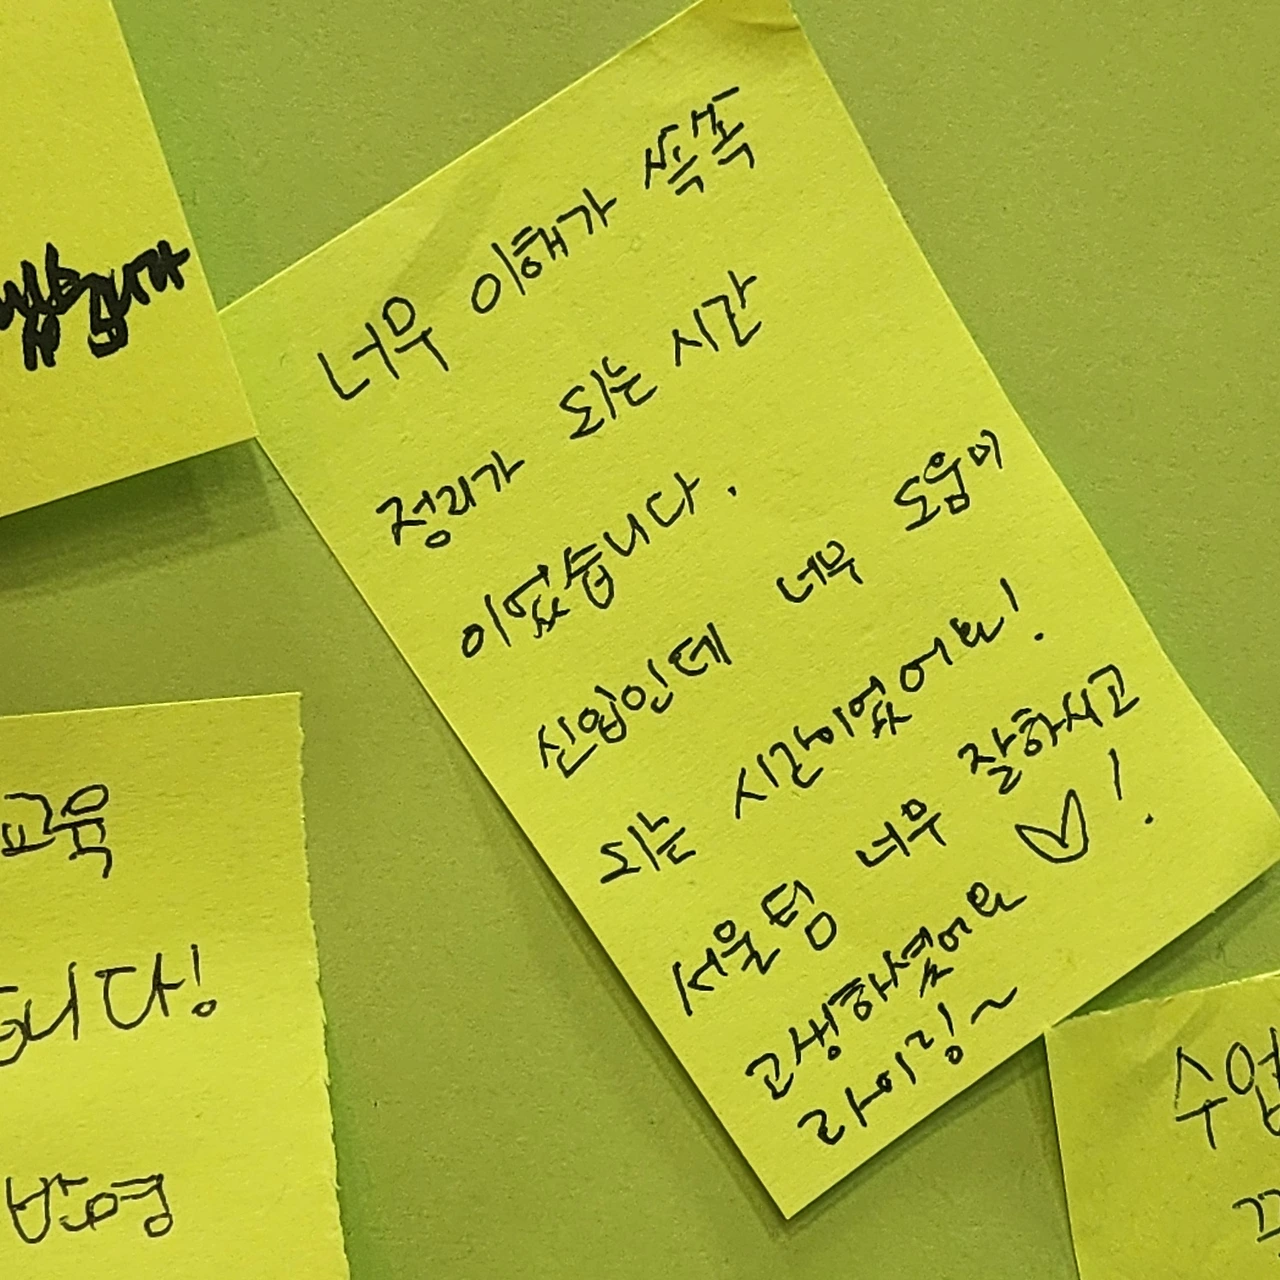 너무 이해가 쏙쏙
정리가 되는 시간
이었습니다.
신입인데 너무 도움이
되는 시간이었어요!
서울텀 너무 잘하시고
고생하셨어요 ♡!
라이링~
교육
니다!
반영
수업